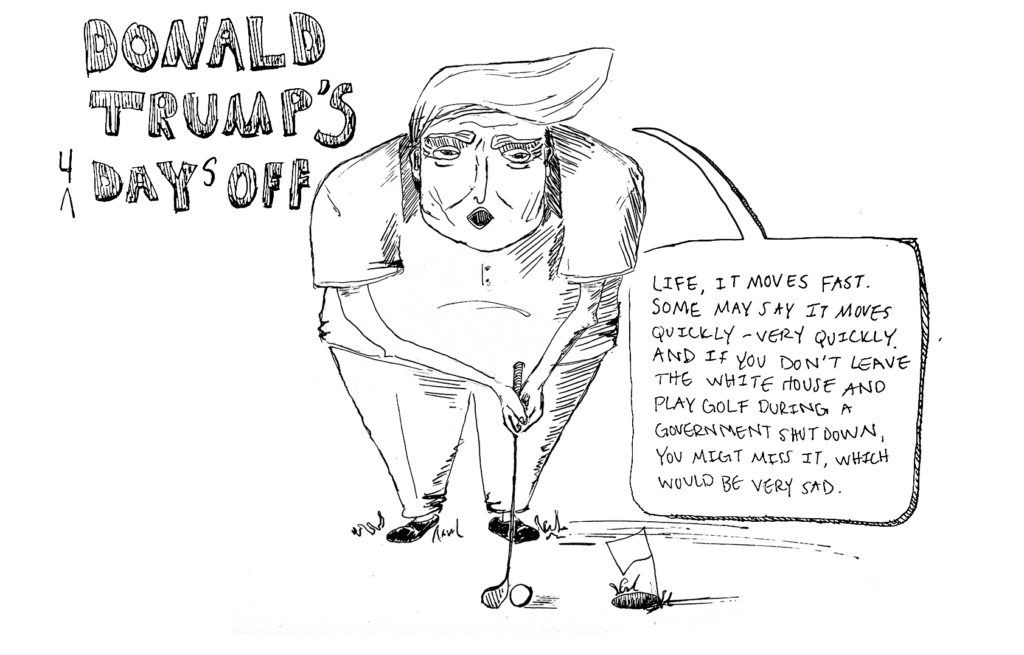 DONALD
TRUMP'S
4 DAYS OFF
LIFE, IT MOVES FAST.
SOME MAY SAY IT MOVES
QUICKLY - VERY QUICKLY.
AND IF YOU DON'T LEAVE
THE WHITE HOUSE AND
PLAY GOLF DURING A
GOVERNMENT SHUT DOWN,
YOU MIGT MISS IT, WHICH
WOULD BE VERY SAD.